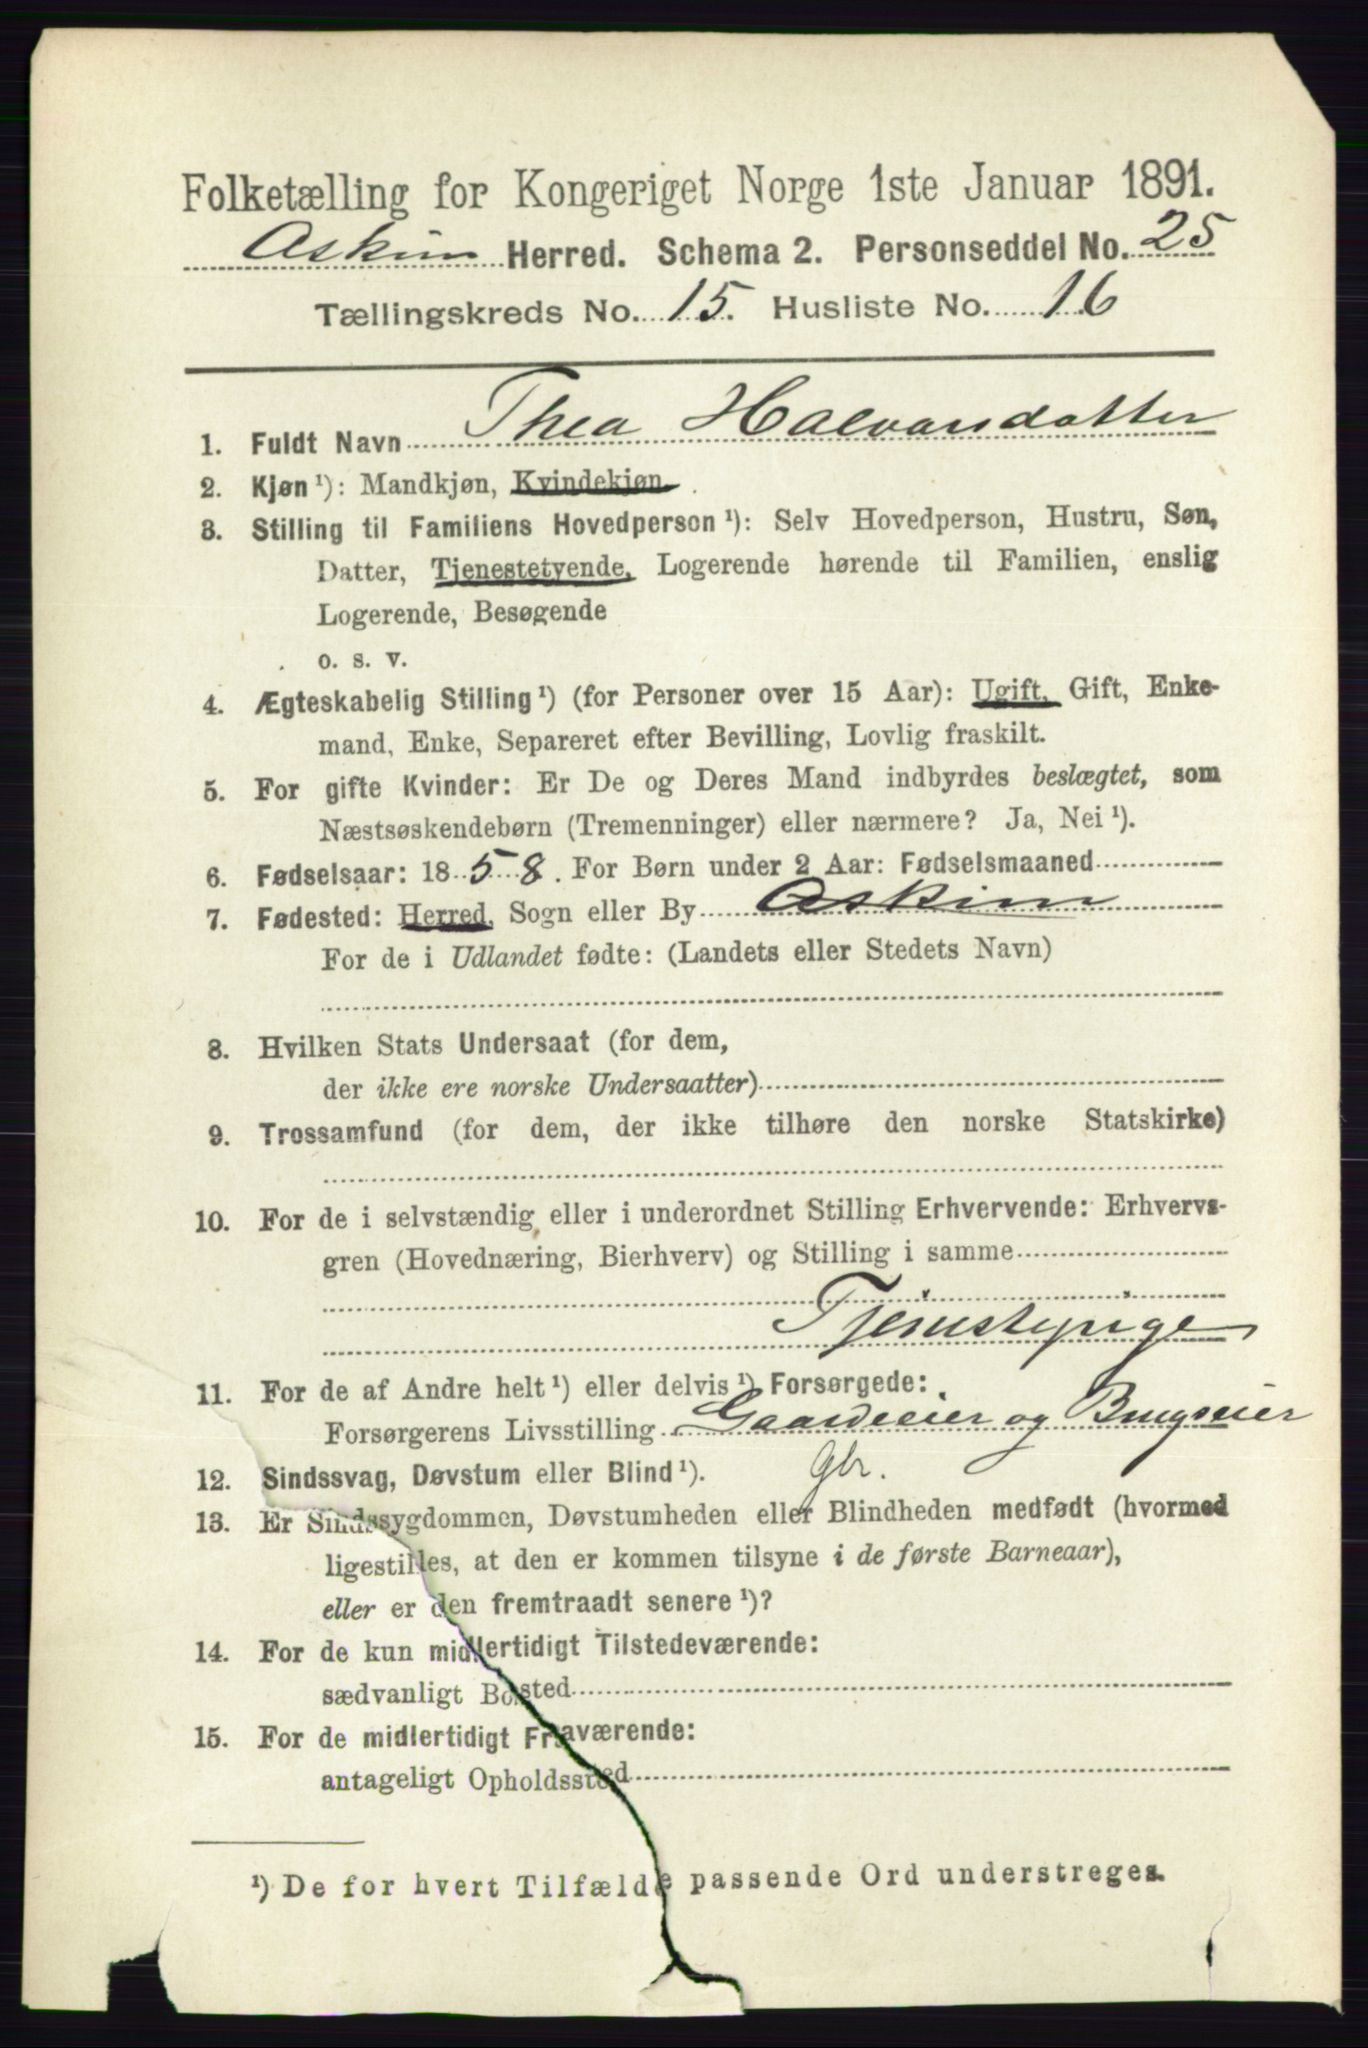 Folketælling for Kongeriget Norge 1ste Januar 1891.
Askim Herred. Schema 2. Personseddel No. 25
Tællingskreds No. 15. Husliste No. 16
1. Fuldt Navn Thea Halvorsdatter
2. Kjøn ¹): Mandkjøn, Kvindekjøn.
3. Stilling til Familiens Hovedperson ¹): Selv Hovedperson, Hustru, Søn,
Datter, Tjenestetyende, Logerende hørende til Familien, enslig
Logerende, Besøgende
o. s. v.
4. Ægteskabelig Stilling ¹) (for Personer over 15 Aar): Ugift, Gift, Enke-
mand, Enke, Separeret efter Bevilling, Lovlig fraskilt.
5. For gifte Kvinder: Er De og Deres Mand indbyrdes beslægtet, som
Næstsøskendebørn (Tremenninger) eller nærmere? Ja, Nei ¹).
6. Fødselsaar: 1858. For Børn under 2 Aar: Fødselsmaaned
7. Fødested: Herred, Sogn eller By Askim
For de i Udlandet fødte: (Landets eller Stedets Navn)
8. Hvilken Stats Undersaat (for dem,
der ikke ere norske Undersaatter)
9. Trossamfund (for dem, der ikke tilhøre den norske Statskirke)
10. For de i selvstændig eller i underordnet Stilling Erhvervende: Erhvervs-
gren (Hovednæring, Bierhverv) og Stilling i samme
Tjenestepige
11. For de af Andre helt ¹) eller delvis ¹) Forsørgede:
Forsørgerens Livsstilling Gaardeier og Brugseier
12. Sindssvag, Døvstum eller Blind ¹). gbr.
13. Er Sindssygdommen, Døvstumheden eller Blindheden medfødt (hvormed
ligestilles, at den er kommen tilsyne i de første Barneaar),
eller er den fremtraadt senere ¹)?
14. For de kun midlertidigt Tilstedeværende:
sædvanligt Bosted
15. For de midlertidigt Fraværende:
antageligt Opholdssted
¹) De for hvert Tilfælde passende Ord understreges.